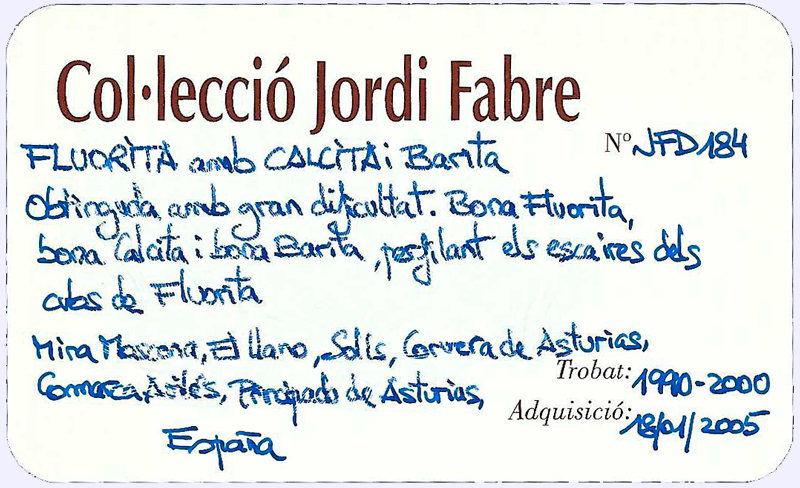 Col·lecció Jordi Fabre
FLUORITA amb CALCITA i Barita
Nº JFD184
Obtinguda amb gran dificultat. Bona Fluorita,
bona Calcita i bona Barita, perfilant els escaires dels
cubs de Fluorita
Mina Moscona, El Llano, Solís, Corvera de Asturias,
Trobat: 1990-2000
Comarca Avilés, Principado de Asturias,
Adquisició: 18/01/2005
España